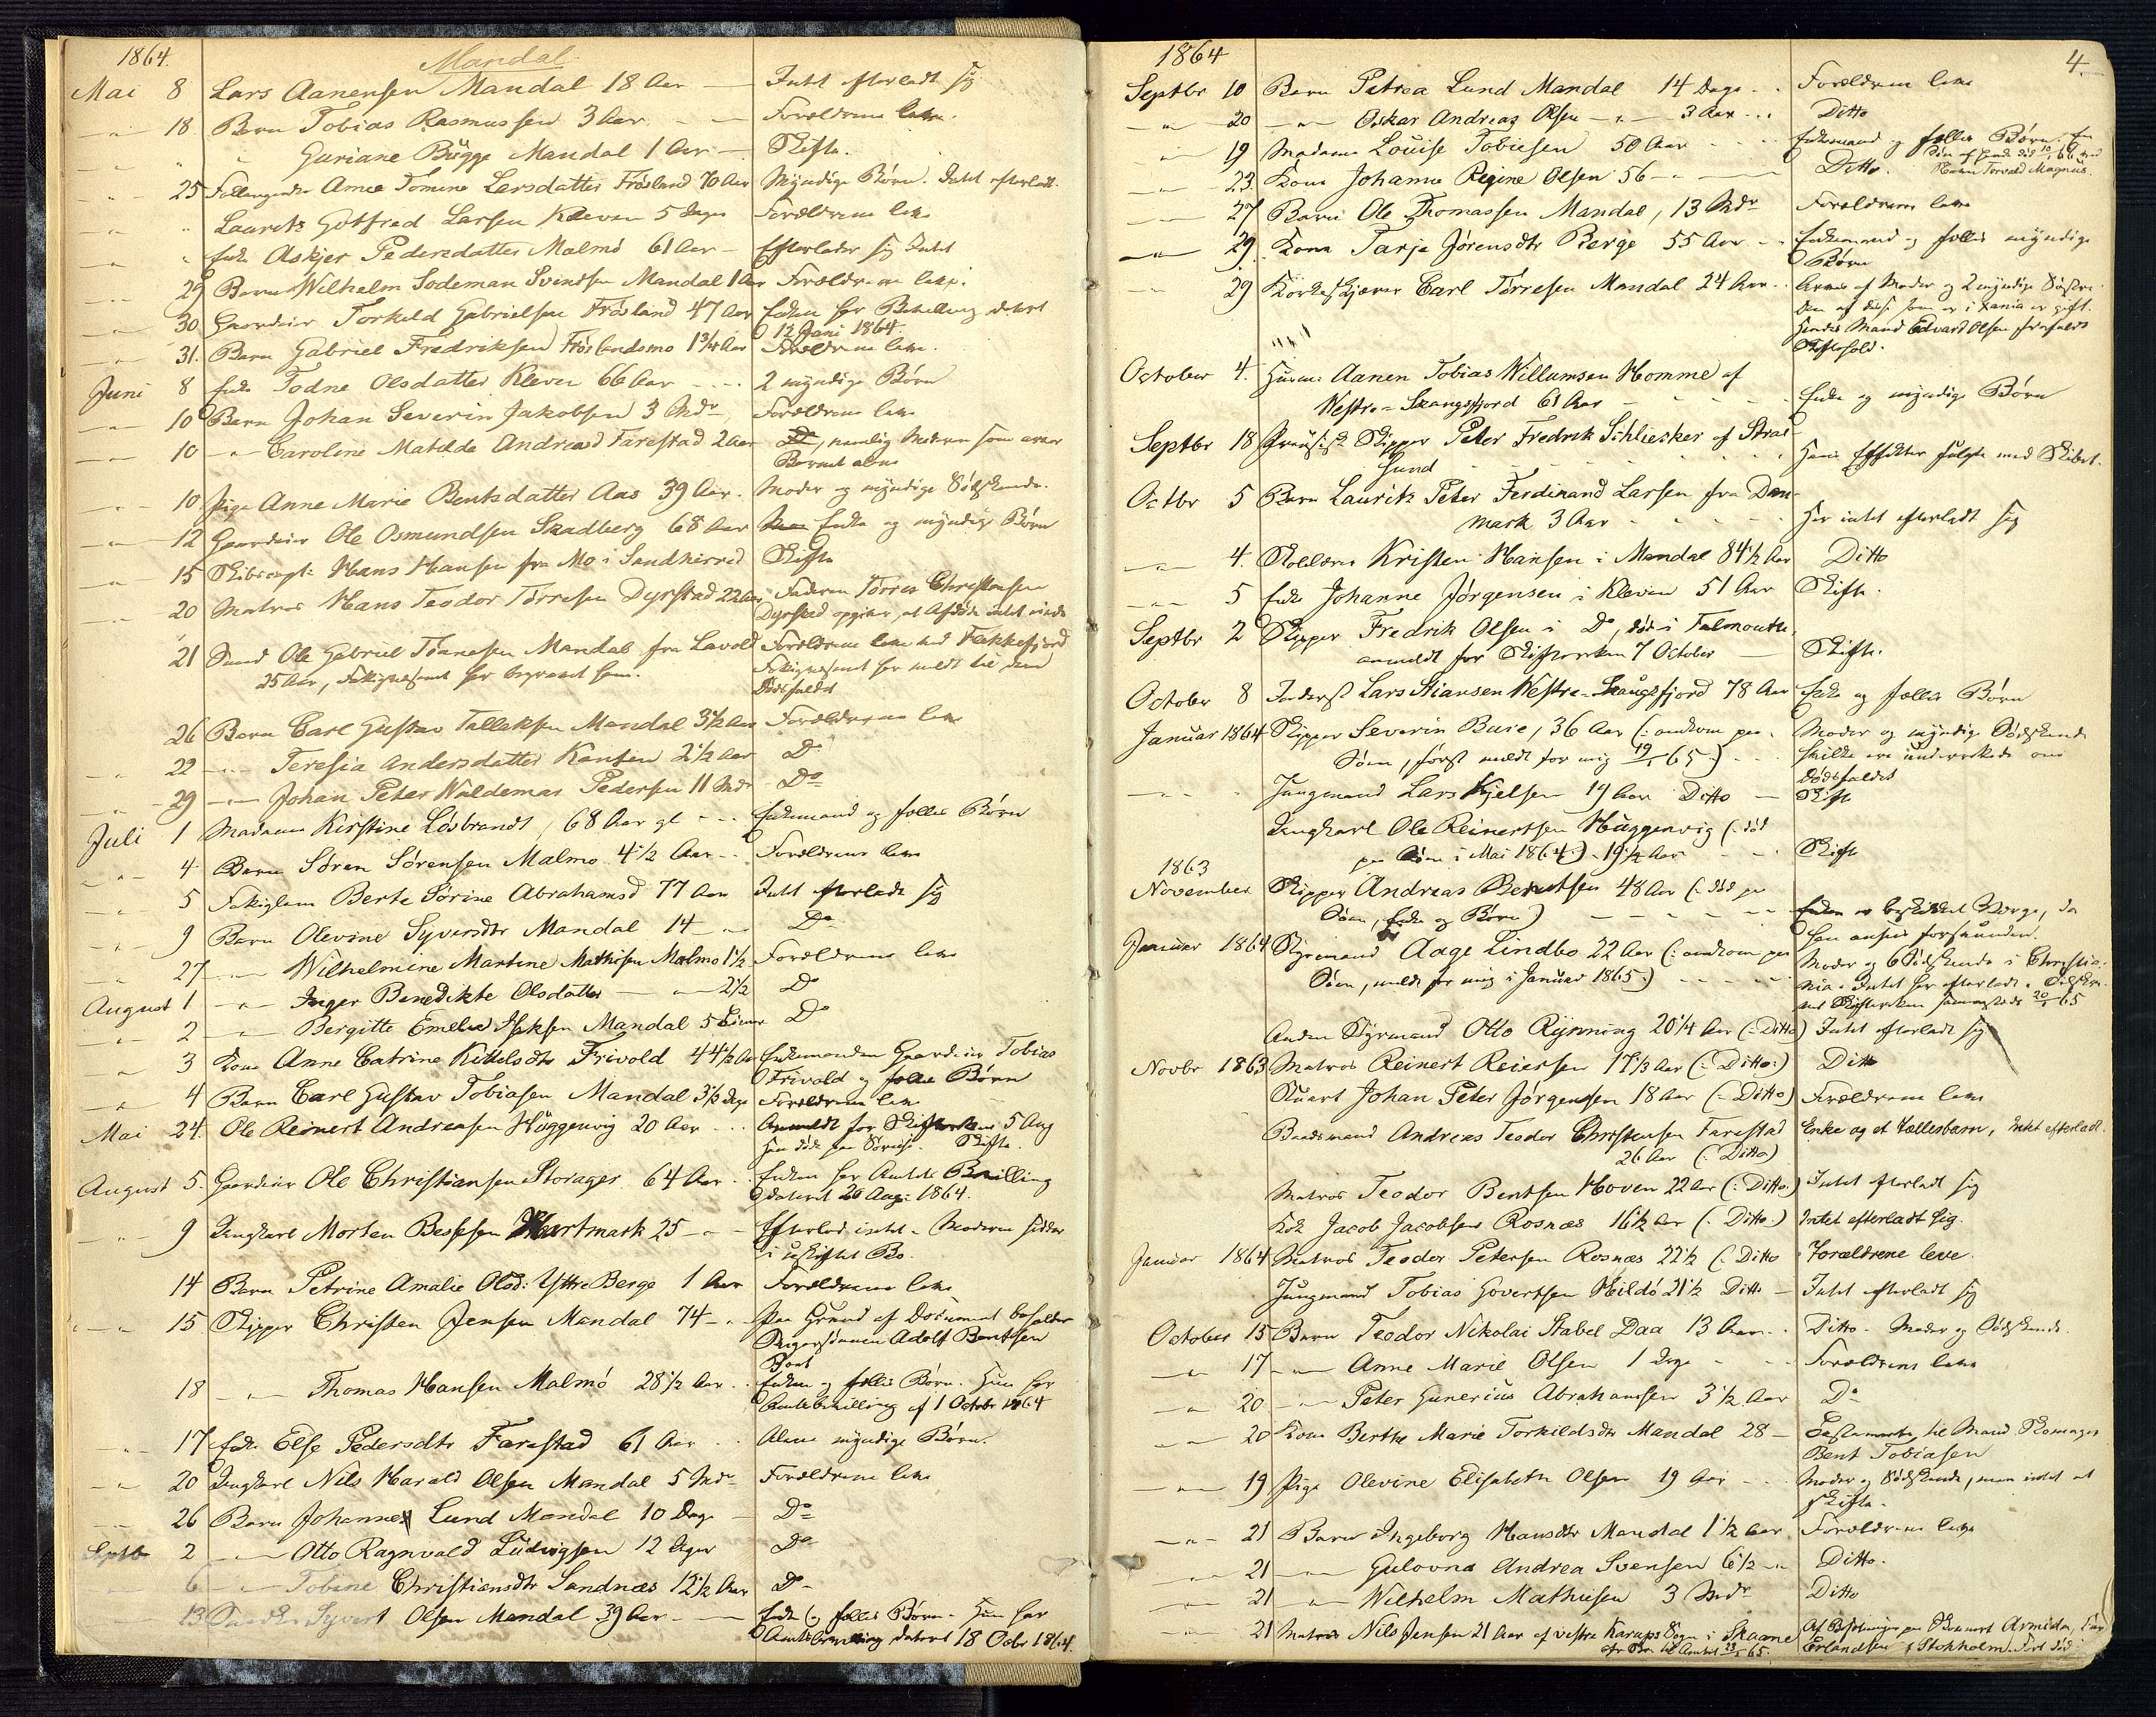 1864. Mandal
Mai 8 Lars Aanensen Mandal 18 Aar — Intet efterladt sig
— " — 18 Barn Tobias Rasmussen 3 Aar — — Forældrene leve.
" " " Guriane Bügge Mandal 1 Aar — Skifte.
" 25 Anne Tomine Larsdatter Frøsland 70 Aar Myndige Børn. Intet efterladt.
" " Laurits Gotfred Larsen Kleven 5 Dage Forældrene leve
" " Enke Askjer Pedersdatter Malmø 61 Aar — Efterlader sig Intet
29 Barn Wilhelm Sodeman Svendsen Mandal 1 Aar Forældrene leve.
30 Gaardeier Torkild Gabrielsen Frøsland 47 Aar Enken har Bevilling datert
12 Juni 1864.
31. Barn Gabriel Fredriksen Frøslandsmo 1 3/4 Aar Forældrene leve.
Juni 8 Enke Todne Olsdatter Kleven 66 Aar — 2 myndige Børn
— " — 10 Barn Johan Severin Jakobsen 3 Mdr Forældrene leve
— " — 10 — " — Caroline Matilde Andreasd Farestad 2 Aar Do, nemlig Moderen som arver
Barnet alene
— " — 10 Pige Anne Marie Bentsdatter Aas 39 Aar. Moder og myndige Sødskende.
— " — 12 Gaardeier Ole Osmundsen Skadberg 68 Aar Enke og myndige Børn
" 15 Hans Hansen fra Mo i Sandherred Skifte
20 Matros Hans Teodor Tørresen Dyrstad 22 Aar Faderen Tørres Christensen
Dyrstad opgiver, at Afdøde intet eiede
21 Ole Gabriel Tønnesen Mandal fra Lavold Forældrene leve ved Flekkefjord
25 Aar, Fattigvæsenet har begravet ham. Fattigvæsenet har meldt dem
Dødsfaldet
26 Barn Carl Gustav Tallaksen Mandal 3 1/2 Aar Forældrene leve
22 — " — Teresia Andersdatter Kanten 2 1/2 Aar Do
29 — " — Johan Peter Waldemar Pedersen 11 Mdr Do
Juli 1 Madame Kirstine Løsbrandt, 68 Aar gl — Enkemand og fælles Børn
— " — 4 Barn Søren Sørensen Malmø 4 1/2 Aar — Forældrene leve
— " — 5 Fattiglem Berte Sørine Abrahamsd 77 Aar Intet efterladt sig
— " — 9 Barn Olevine Syversdtr Mandal 14 — " — Do
— " — 27 — " — Wilhelmine Martine Mathisen Malmø 1 1/2 Forældrene leve
August 1 — " — Inger Benedikte Olsdatter — " — 2 1/2 Do
— " — 2 — " — Bergitte Emelie Isaksen Mandal 5 Do
— " — 3 Kone Anne Catrine Kittelsdtr Frivold 44 1/2 Aar Enkemanden Gaardeier Tobias
Frivold og fælles Børn
— " — 4 Barn Carl Gustav Tobiasen Mandal 3 1/2 Dage Forældrene leve
Mai 24. Ole Reinert Andreasen Hüggenvig 20 Aar — Anmeldt for Skifteretten 5 Aug
Han døde paa Skifte.
August 5. Gaardeier Ole Christiansen Storager 64 Aar. Enken har Amtets Bevilling
dateret 26 Aug: 1864.
— " — 9 Ungkarl Morten Bessesen Hartmark 25 — " — Efterlod intet — Moderen sidder
i uskiftet Bo.
14 Barn Petrine Amalie Olsd: Yttre Berge 1 Aar Forældrene leve
— " — 15 Skipper Christen Jensen Mandal 74 — " — Paa Grund af Document beholder
Adolf Bentsen
Boet
18 — " — Thomas Hansen Malmø 28 1/2 Aar — Enken og fælles Børn. Hun har
Amtsbevilling af 1 Octobr 1864
— " — 17 Enke Else Pedersdtr Farestad 61 Aar — Alene myndige Børn.
— " — 20 Ungkarl Nils Harald Olsen Mandal 5 Mdr Forældrene leve
26 Barn Johannes Lund Mandal 10 Dage — Do
Septbr 2 — " — Otto Ragnvald Ludvigsen 12 Dager Do
6 — " — Tobine Christiansdtr Sandnæs 12 1/2 Aar Do
13 Syvert Olsen Mandal 39 Aar — Enke og fælles Børn — Hun har
Amtsbevilling dateret 18 Octbr 1864.
1864 4.
Septbr 10 Barn Petrea Lund Mandal 14 Dage — Forældrene leve
— " — 20 — " — Oskar Andreas Olsen — " — 3 Aar — Ditto
— " — 19 Madame Louise Tobiesen 50 Aar — Enkemand og fælles Børn. En
Søn af hende død 10/1 66 ved
Navn Torvald Magnus.
— " — 23. Kone Johanne Regine Olsen 56 — " — Ditto.
27 Barn Ole Thomassen Mandal, 13 Mdr Forældrene leve
— " — 29. Kone Tarje Jørensdtr Berge 55 Aar — Enkemand og fælles myndige
Børn
29 Carl Tørresen Mandal 24 Aar — Arves af Moder og 2 myndige Søstre.
Den af disse som er i Xania er gift.
Hendes Mand Edvard Olsen, frafaldt
October 4. Aanen Tobias Willumsen Homme af
Westre-Skaugsfjord 61 Aar — Enke og myndige Børn
Septbr 18 Preusisk Skipper Peter Fredrik Schliesker af Stral-
sund — Hans Effekter fulgte med Skibet.
Octbr 5 Barn Laurits Peter Ferdinand Larsen fra Dan-
mark 3 Aar — Har intet efterladt sig
— " — 4. Kristen Hansen i Mandal 84 1/2 Aar Ditto
— " — 5 Enke Johanne Jørgensen i Kleven 51 Aar Skifte.
Septbr 2 Skipper Fredrik Olsen i Do, død i Falmouth,
anmeldt for Skifteretten 7 October — Skifte.
October 8 Inderst Lars Stiansen Westre-Skaugsfjord 78 Aar Enke og fælles Børn
Januar 1864 Skipper Severin Buse, 36 Aar (: omkom paa Moder og myndige Sødskende
Søen, først meldt for mig 19/1 65 :) — hvilke ere underrettede om
Dødsfaldet
— " — Jungmand Lars Kjelsen 19 Aar Ditto — Skifte
Ungkarl Ole Reinertsen Hüggenvig (: død
paa Søen i Mai 1864 :) — 19 1/2 Aar — Skifte
1863
November Skipper Andreas Berntsen 48 Aar (: død paa
Søen, Enke og Børn) — Enken er beskikket Værge, da
han ansees forsvunden.
Januar 1864 Styrmand Aage Lindbo 22 Aar (: omkom paa Moder og 6 Sødskende i Christia-
Søen, meldt for mig i Januar 1865 :) — nia. Intet har efterladt.
20/1 65
Anden Styrmand Otto Rynning 20 1/4 Aar (: Ditto) Intet efterladt sig
Novbr 1863 Matros Reinert Reiersen 17 1/3 Aar (: Ditto :) Ditto
Stuert Johan Peter Jørgensen 18 Aar (: Ditto) Forældrene leve
Baadsmand Andreas Teodor Christensen Farestad Enke og et Fællesbarn, Intet efterladt.
26 Aar (: Ditto)
Matros Teodor Bentsen Hoven 22 Aar (: Ditto.) Intet efterladt sig
Kok Jacob Jacobsen Rosnæs 16 1/2 Aar (: Ditto.) Intet efterladt sig.
Januar 1864 Matros Teodor Petersen Rosnæs 22 1/2 (: Ditto Forældrene leve.
Jungmand Tobias Govertsen Hildø 21 1/2 Ditto — Intet efterladt sig
October 15 Barn Teodor Nikolai Stabel Daa 13 Aar — Ditto — Moder og Sødskende.
— " — 17 — " — Anne Marie Olsen 1 Dage — Forældrene leve
— " — 20 — " — Peter Gunerius Abrahamsen 3 1/2 Aar Do
— " — 20 Kone Berthe Marie Torkildsdtr Mandal 28 — Testamente til Mand Skomager
Bent Tobiasen
— " — 19 Pige Olevine Elisabeth Olsen 19 Aar — Moder og Sødskende, men intet at
skifte.
— " — 21 Barn Ingeborg Hansdtr Mandal 1 1/2 Aar Forældrene leve
— " — 21 — " — Gulovna Andrea Svensen 6 1/2 — " Ditto.
— " — 21 — " — Wilhelm Mathiesen 3 Mdr Ditto
— " — 21 Matros Nils Jensen 21 Aar af vestra Karups Sogn i Skaane Af Besætningen paa Skonnert Armida, Capt
23/5 65. Erlandsen af Stokholm.